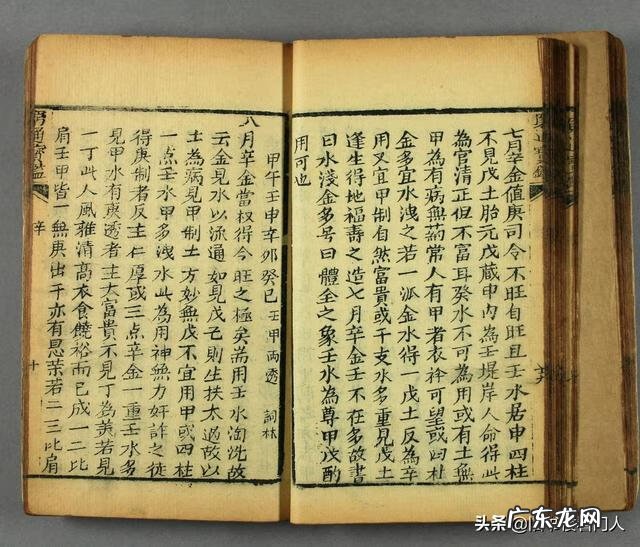 七月辛金值庚司令不旺自旺且壬水居申四柱
不見戊土胎元戊藏申內為壬堤岸人命得此
為官清正但不富耳癸水不可為用或有土無
甲為有病無葯常人有甲者衣衿可望或四柱
金多宜水洩之若一派金水得一戊土反為辛
用又宜甲制自然富貴或干支水多重見戊土
逢生得地福壽之造七月辛金壬不在多故書
曰水淺金多号曰體全之象壬水為尊甲戊酌
用可也
甲午壬申辛夘癸巳 壬甲兩透 詞林
八月辛金當权得令旺之極矣耑用壬水淘洗故
云金見水以流通如見戊己則生扶太過故以
土為病見甲制土方妙無戊不宜用甲或四柱
一点壬水甲多洩水此為用神無力奸詐之徒
得庚制者反主仁厚或三点辛金一重壬水多
見甲水有庚透者主大富貴不見丁為美若見
一丁此人風雅清高衣食饒裕而已成一二比
肩壬甲皆一無庚出干亦有恩荣若二三比肩
窮通寳鑑
辛
十
头条
广东龙网